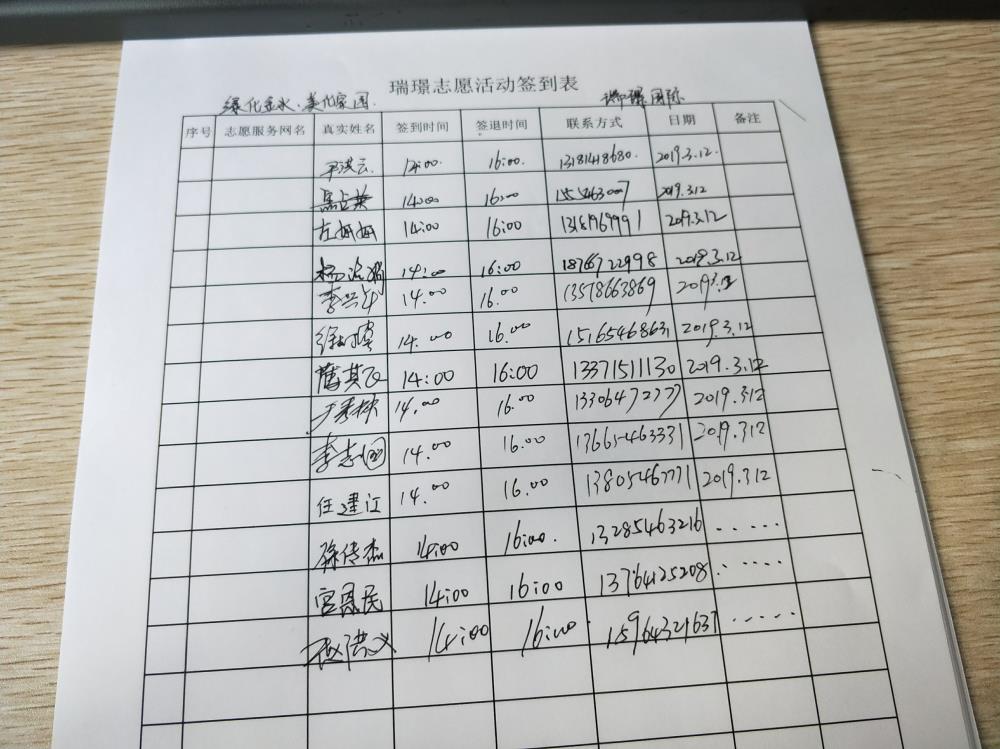 瑞璟志愿活动签到表
绿化金水·美化家园 瑞璟国际
序号 志愿服务网名 真实姓名 签到时间 签退时间 联系方式 日期 备注
尹洪云 14:00 16:00 13181418680 2019.3.12
14:00 16:00 2019.3.12
左姗姗 14:00 16:00 13181969991 2019.3.12
14:00 16:00 18766722998 2019.3.12
14.00 16.00 13578663869 2019.3.12
14.00 16.00 15165468631 2019.3.12
14:00 16:00 13371511130 2019.3.12
14.00 16.00 13306472777 2019.3.12
李志国 14.00 16.00 13665463331 2019.3.12
任建江 14.00 16.00 13805467771 2019.3.12
徐传杰 14:00 16:00 13285463216 .....
宫恩民 14:00 16:00 13764125208 .....
赵洪义 14:00 16:00 15964321637 .....